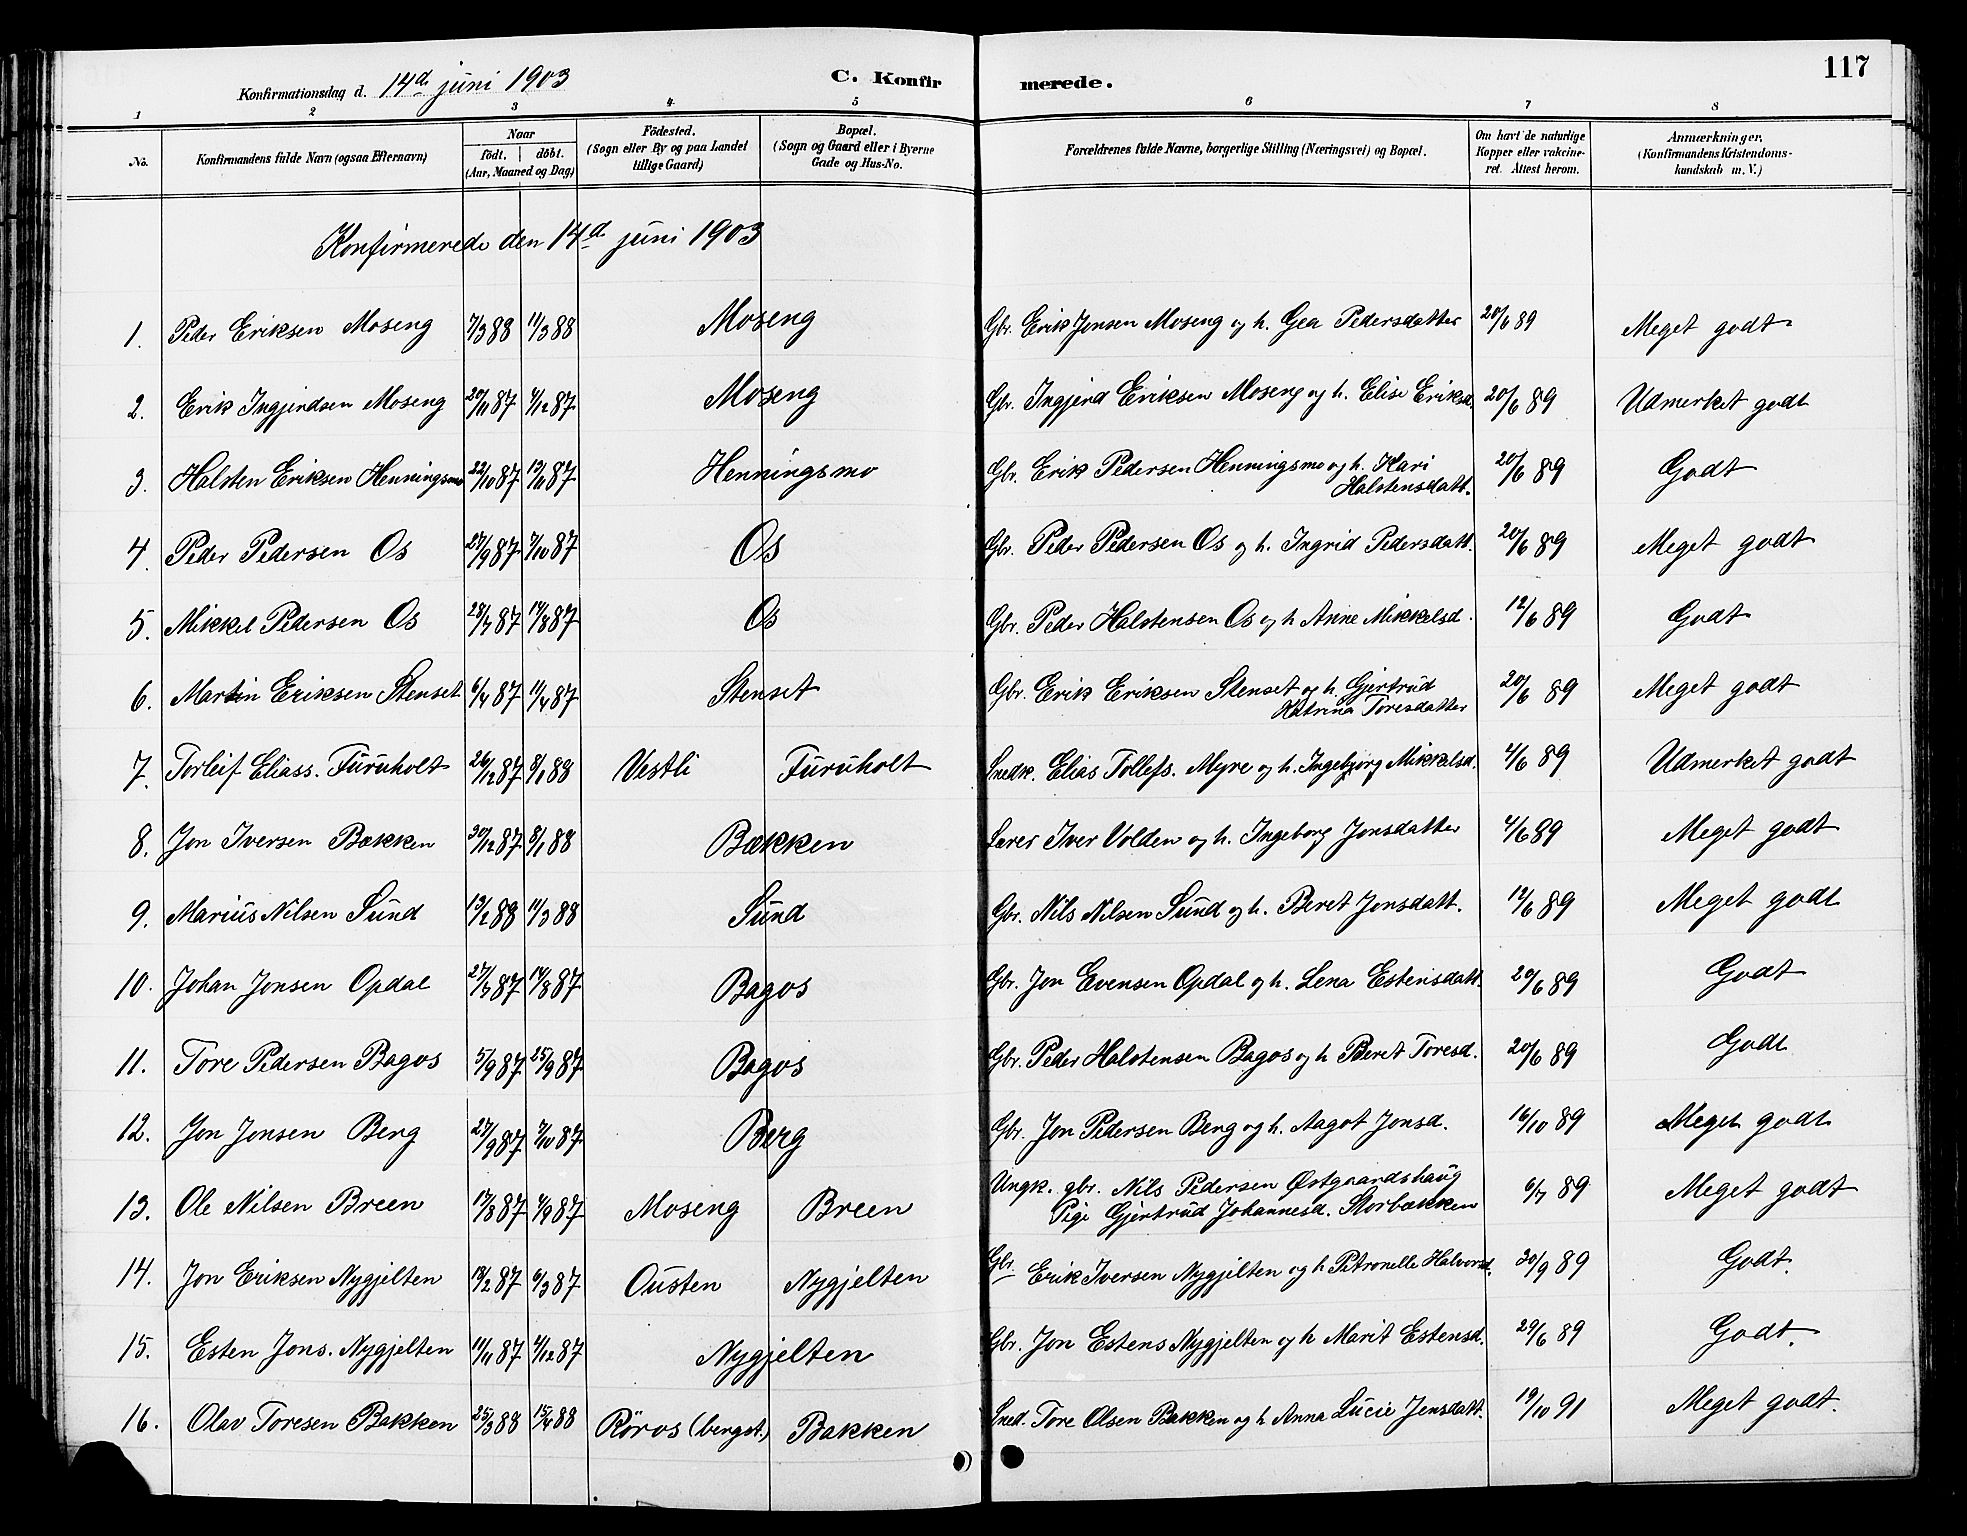 117
Konfirmationsdag d. 14d juni 1903 C. Konfirmerede.
1 2 3 4 5 6 7 8
No. Konfirmandens fulde Navn (ogsaa Efternavn) Naar födt. döbt. (Aar, Maaned og Dag) Födested. (Sogn eller By og paa Landet tillige Gaard) Bopæl. (Sogn og Gaard eller i Byerne Gade og Hus-No. Forældrenes fulde Navne, borgerlige Stilling (Næringsvei) og Bopæl. Om havt de naturlige Kopper eller vakcineret. Attest herom. Anmærkninger, (Konfirmandens Kristendomskundskab m. V.)
Konfirmerede den 14d juni 1903
1. Peder Eriksen Moseng 7/3 88 11/3 88 Moseng Gbr. Erik Jonsen Moseng og h. Gea Pedersdatter 20/6 89 Meget godt
2. Erik Ingjerdsen Moseng 20/11 87 4/12 87 Moseng Gbr. Ingjerd Eriksen Moseng og h. Elise Eriksd. 20/6 89 Udmerket godt
3. Halsten Eriksen Henningsmo 22/10 87 13/11 87 Henningsmo Gbr. Erik Pedersen Henningsmo og h. Kari Halstensdatt. 20/6 89 Godt
4. Peder Pedersen Os 27/9 87 7/10 87 Os Gbr. Peder Pedersen Os og h. Ingrid Pedersdatt. 20/6 89 Meget godt
5. Mikkel Pedersen Os 28/7 87 14/8 87 Os Gbr. Peder Halstensen Os og h Anne Mikkelsd. 12/6 89 Godt
6. Martin Eriksen Stenset 6/4 87 11/4 87 Stenset Gbr. Erik Eriksen Stenset og h. Gjertrud Katrina Toresdatter 20/6 89 Meget godt
7. Torleif Eliass. Furuholt 26/12 87 8/1 88 Vestli Furuholt Snedk. Elias Tollefs. Myre og h. Ingebjørg Mikkelsd. 4/6 89 Udmerket godt
8. Jon Iversen Bækken 30/12 87 8/1 88 Bækken Lærer Iver Volden og h. Ingeborg Jonsdatter 4/6 89 Meget godt
9. Marius Nilsen Sund 13/2 88 11/3 88 Sund Gbr. Nils Nilsen Sund og h. Beret Jonsdatt. 12/6 89 Meget godt
10. Johan Jonsen Opdal 27/7 87 14/8 87 Bagos Gbr. Jon Evensen Opdal og h. Lena Estensdatt. 20/6 89 Godt
11. Tore Pedersen Bagos 5/9 87 25/9 87 Bagos Gbr. Peder Halstensen Bagos og h Beret Toresd. 20/6 89 Godt
12. Jon Jonsen Berg 27/9 87 7/10 87 Berg Gbr. Jon Pedersen Berg og h. Aagot Jonsd. 16/10 89 Meget godt
13. Ole Nilsen Breen 17/8 87 4/9 87 Moseng Breen Ungk. gbr. Nils Pedersen Østgaardshaug Pige Gjertrud Johannesd. Storbækken 6/7 89 Meget godt
14. Jon Eriksen Nygjelten 19/2 87 6/3 87 Ousten Nygjelten Gbr. Erik Iversen Nygjelten og h Petronelle Halvorsd. 30/9 89 Godt.
15. Esten Jons. Nygjelten 11/11 87 4/12 87 Nygjelten Gbr. Jon Estens Nygjelten og h Marit Estensd. 29/6 89 Godt.
16. Olav Toresen Bakken 25/3 88 15/4 88 Röros (bergst.) Bakken Sned. Tore Olsen Bakken og h Anna Lucie Jensdatt. 19/10 91 Meget godt.